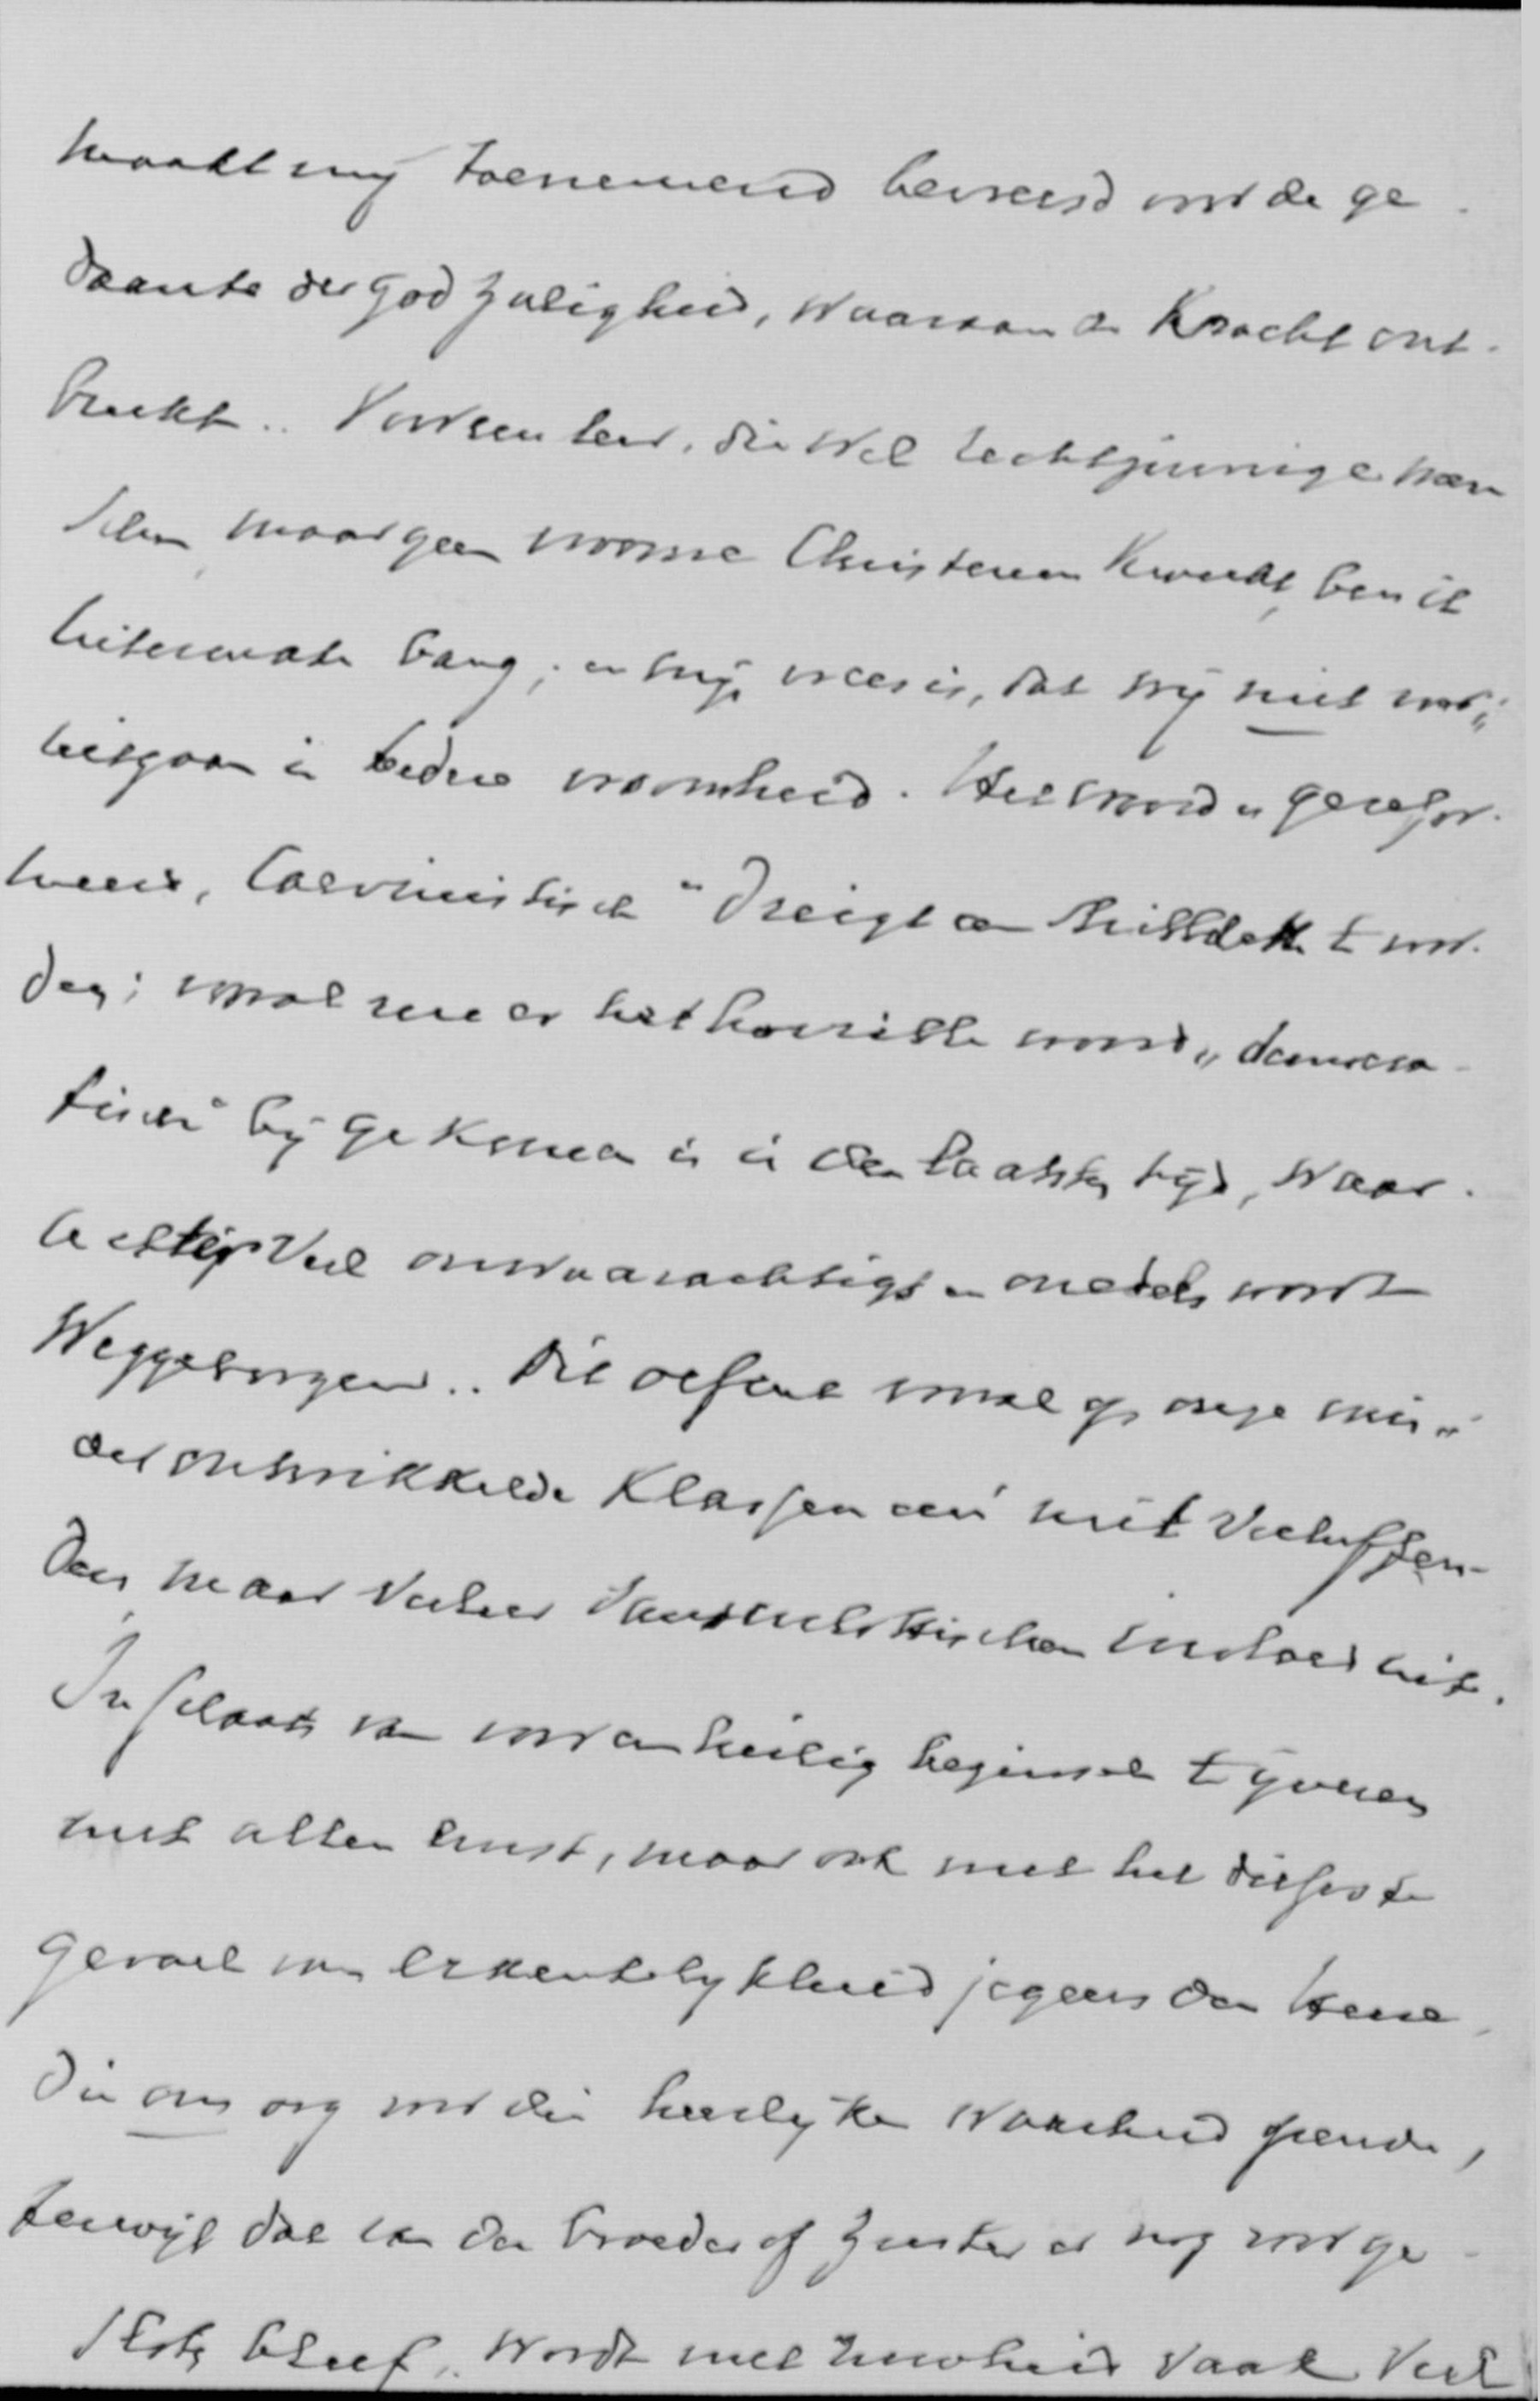 maakt mij toenemend bevreesd voor de ge-
daante der godzaligheid, waaraan de Kracht ont-
breekt.. Voor een leer, die wel rechtzinnige men
schen, maar geen vrome Christenen Kweekt, ben ik
uitermate bang; en mijn vrees is, dat wij niet voor-
uitgaan in tedere vroomheid. Het woord „gerefor-
meerd, Calvinistisch" dreigt een schild te wor-
den; vooral nu er het horribele woord „democra-
tisch" bij gekomen is in den laatsten tijd, waar-
achter veel onwaarachtigs en onedels wordt
Weggeborgen.. Dit oefent vooral op onze min-
der ontwikkelde Klassen een niet verheffen-
den maar veeleer invloed uit.
In plaats van voor een heilig beginsel te ijveren
met allen ernst, maar ook met het diepste
gevoel van erkentelijkheid jegens den Heere,
Die ons oog voor die heerlijke Waarheid opende,
terwijl dat van den broeder of zuster er nog voor ge-
sloten bleef, wordt met ruwheid vaak veel